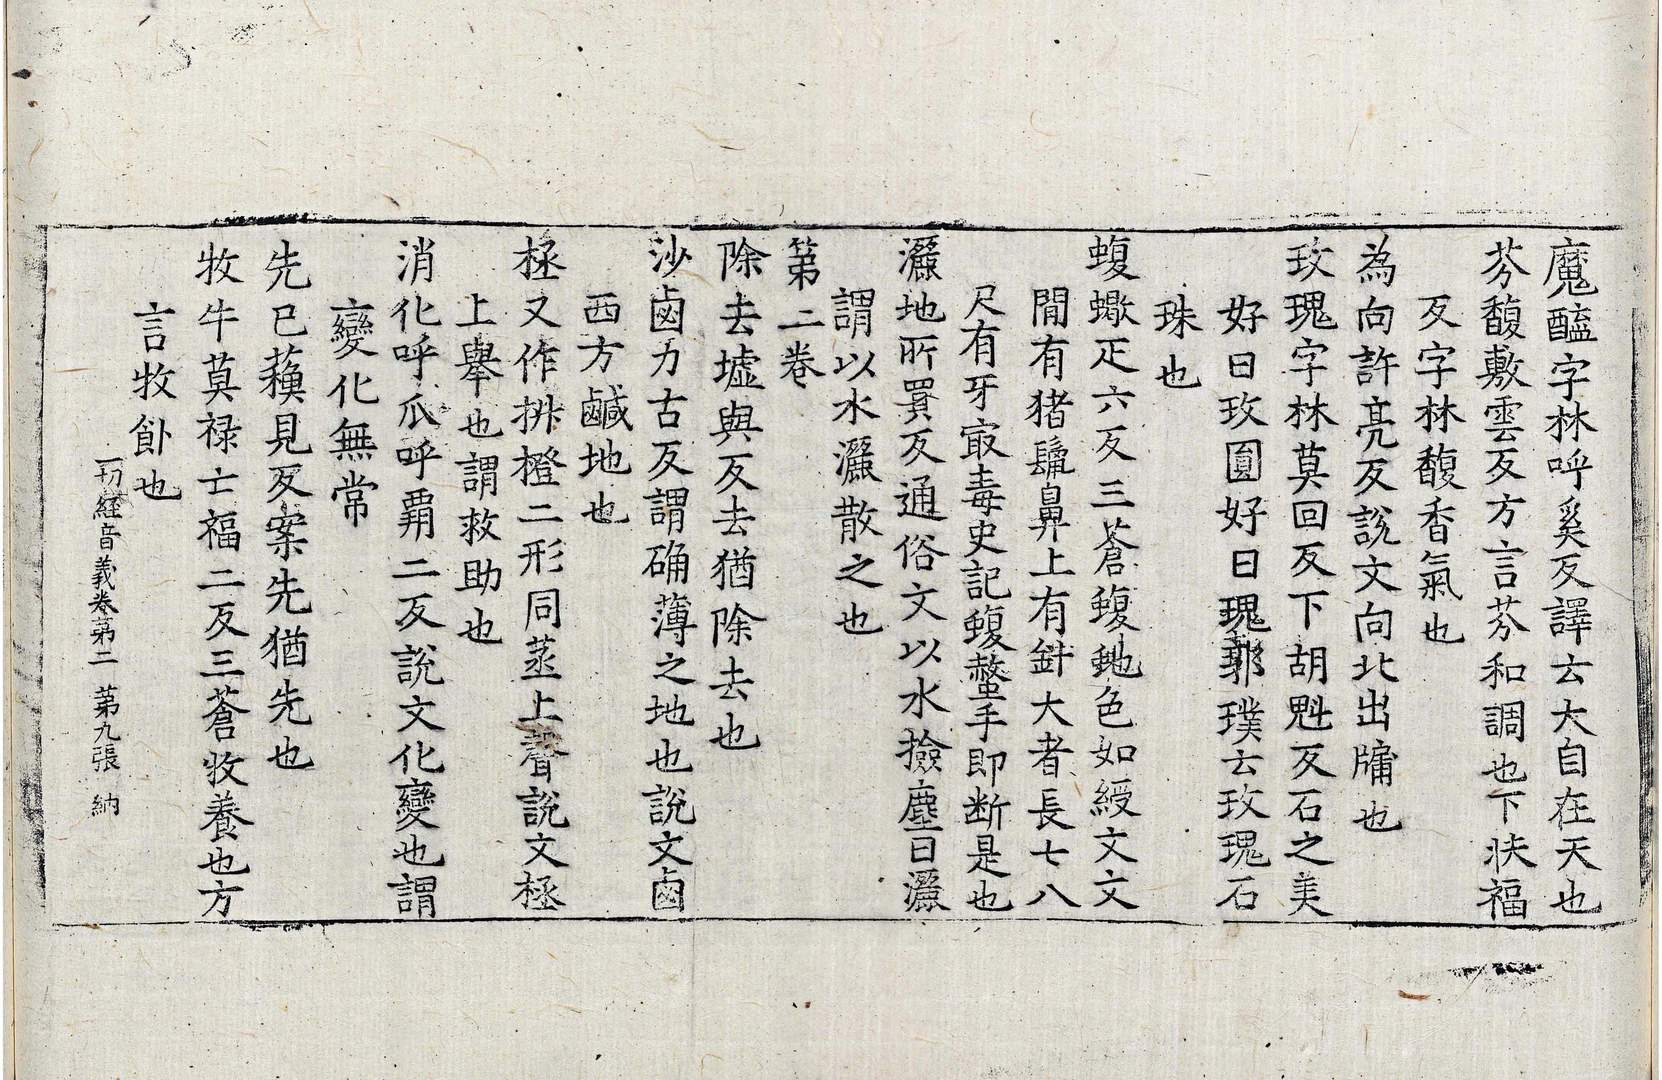 魔醯字林呼奚反譯云大自在天也
芬馥敷雲反方言芬和調也下扶福
反字林馥香氣也
為向許亮反說文向北出牖也
玫瑰字林莫回反下胡魁反石之美
好曰玫圎好曰瑰郭璞云玫瑰石
珠也
蝮蠍疋六反三蒼蝮虵色如綬文文
閒有猪鬣鼻上有針大者長七八
尺有牙㝡毒史記蝮螫手即断是也
灑地所買反通俗文以水撿塵曰灑
謂以水灑散之也
第二卷
除去墟與反去猶除去也
沙鹵力古反謂确薄之地也說文鹵
西方鹹地也
拯又作抍橙二形同蒸上聲說文拯
上舉也謂救助也
消化呼瓜呼霸二反說文化變也謂
變化無常
先已蘓見反案先猶先也
牧牛莫禄亡福二反三蒼牧養也方
言牧飤也
一切経音義卷第二　第九張　納